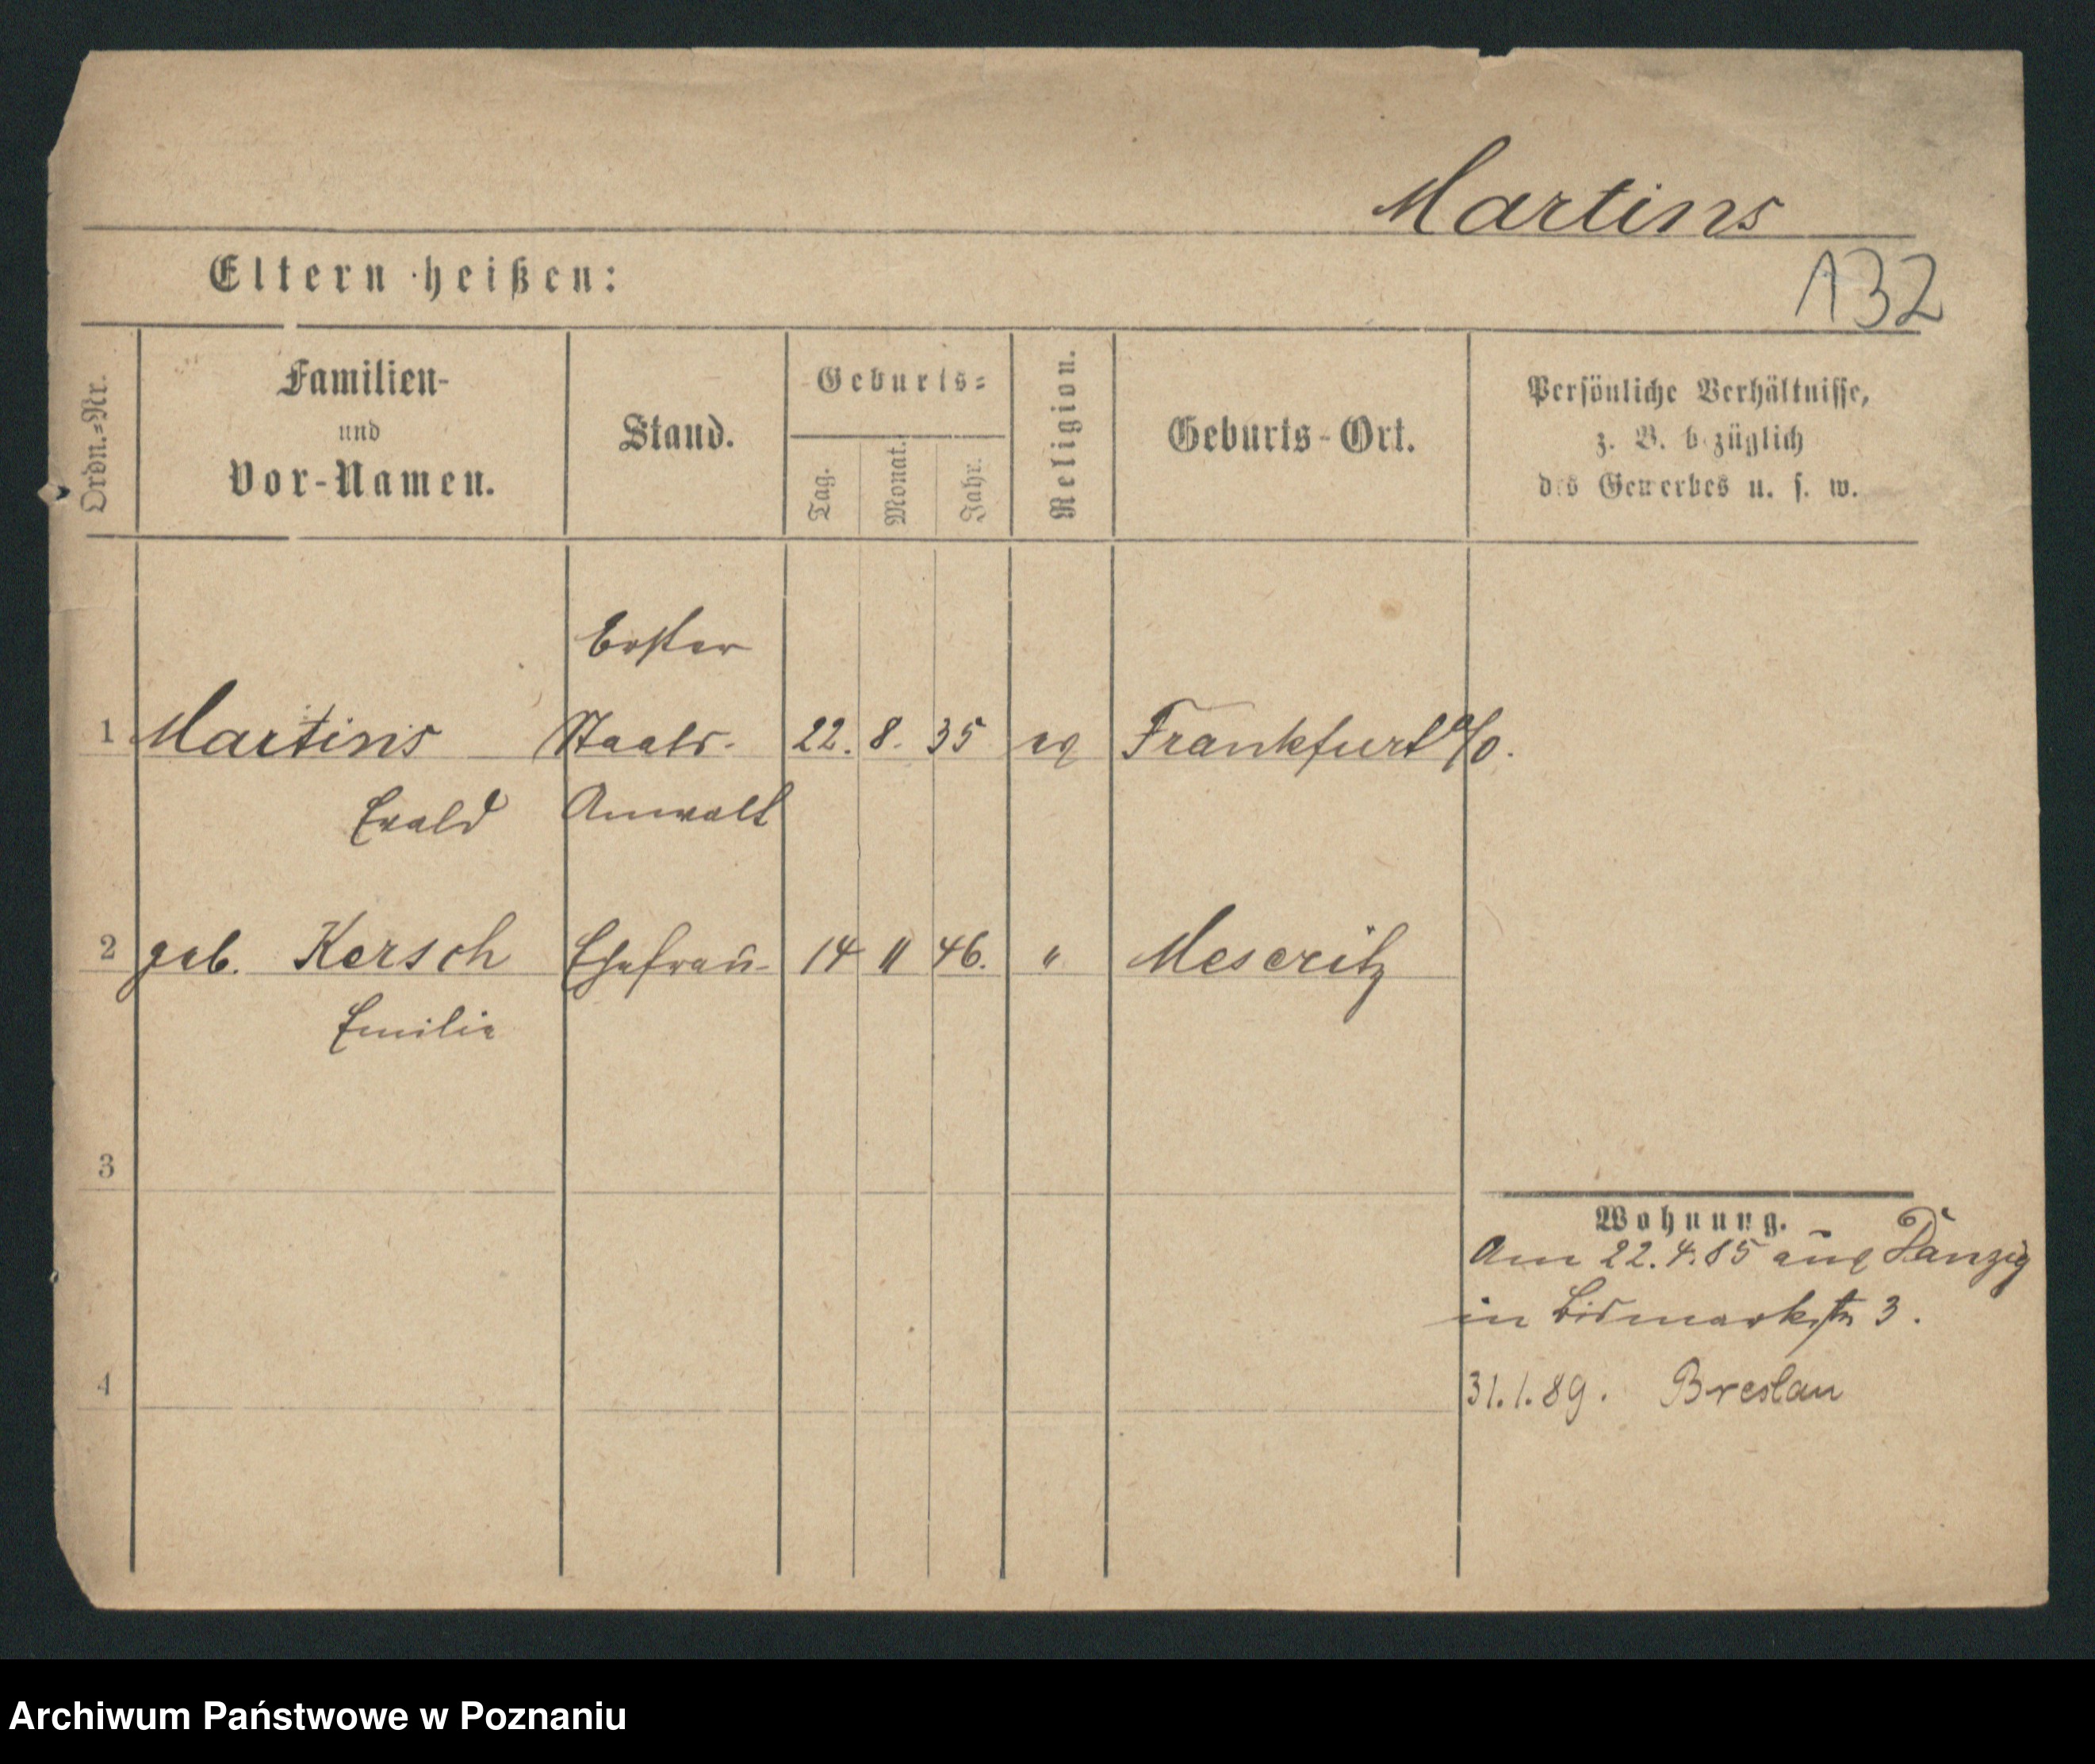 Martins
132
Eltern heißen:
Ordn.=Nr.
Familien-
und
Vor-Namen.
Stand.
Geburts=
Tag.
Monat.
Jahr.
Religion.
Geburts-Ort.
Persönliche Verhältnisse,
z. B. bezüglich
des Gewerbes u. s. w.
Erster
1 Martins Staats- 22. 8. 35 ev Frankfurt a/o.
Ewald Anwalt
2 geb. Kersch Ehefrau 14 11 46. " Meseritz
Emilie
3
Wohnung.
Am 22.4.85 aus Danzig
in Bismarkstr 3.
4
31.1.89. Breslau
Archiwum Państwowe w Poznaniu